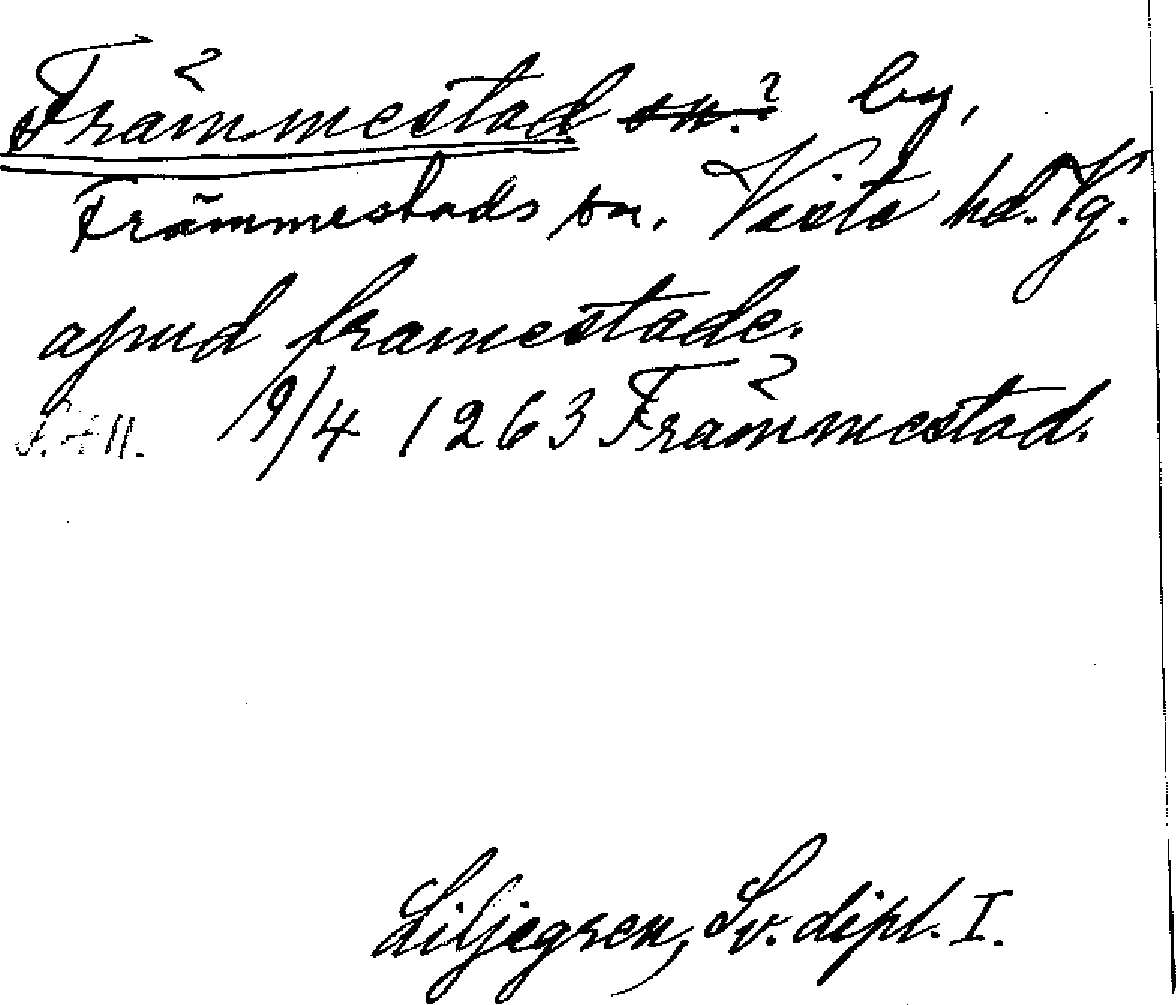 Främmestad sn.? by,
Främmestads sn. Viste hd. Vg.
apud framestade.
19/4 1263 Främmestad.
Liljegren, Sv. dipl. I.